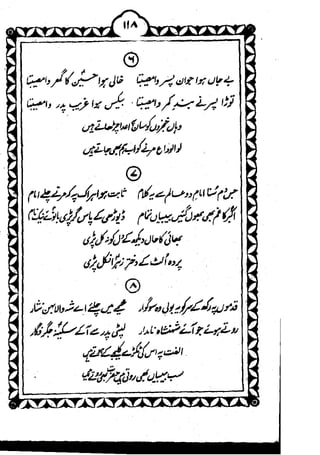 ۱۱۸
۶
بے جاں ہوا جوان پسر وا مصیبتا خالی ہوا حسینؑ کا گھر وا مصیبتا
توڑا پسر نے بند کمر وا مصیبتا بیکس ہوا غریب پدر وا مصیبتا
وہاں خنجروں کو سان اعدا چڑھاتے ہیں
لو الوداع مرنے کو اب ہم بھی جاتے ہیں
۷
جس دم سنا امام دو عالم سے یہ کلام ثابت ہوا ہر اک پہ کہ مرنے چلے امام
اکبر کا غم بھی بھول گئیں بیبیاں تمام ڈیوڑھی کے پاس گر پڑی بانوئے
بھائی کا حال دیکھ کے دل کو نہ کل پڑی
پردہ الٹ کے دختر زہراؑ نکل پڑی
۸
قدموں پہ رکھ کے سر کو یہ بولی وہ سوگوار مجھے میں چلئے اے شہ والا بہن نثار
روتے ہوئے جو آئے شہنشاہ نامدار لپٹی پدر سے آ کے سکینہؑ جگر فگار
الفت یہ اس کی ٹکڑے کلیجے کے ہوتے ہیں
سب بیبیاں بھی روتی ہیں حضرت بھی روتے ہیں